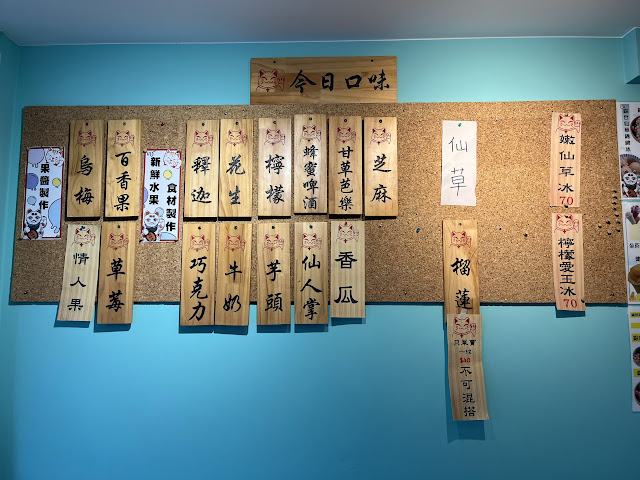 今日口味
果醬製作
烏梅
情人果
百香果
草莓
新鮮水果
食材製作
釋迦
巧克力
花生
牛奶
檸檬
芋頭
蜂蜜啤酒
仙人掌
甘草芭樂
香瓜
芝麻
仙草
榴蓮
只單賣
一球
$40
不可混搭
嫩仙草冰
70
檸檬愛玉冰
70